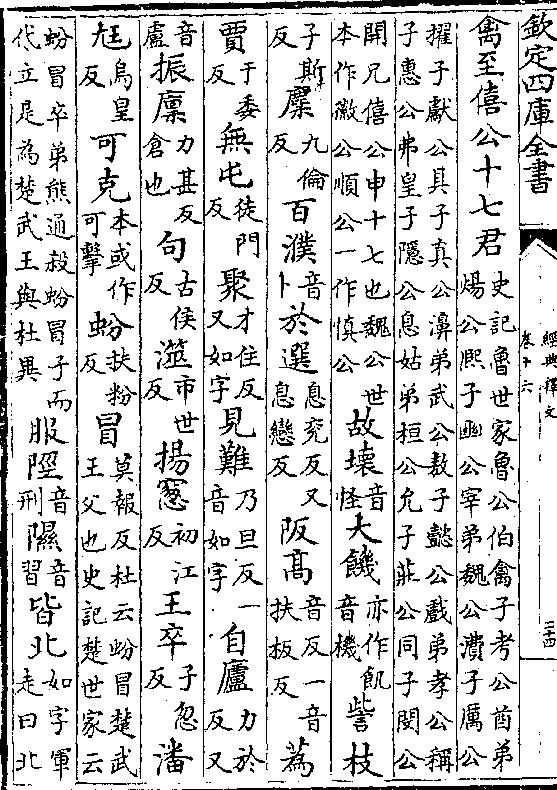 欽定四庫全書
經典釋文
卷十六
二十四
禽至僖公十七君史記魯世家魯公伯禽子考公酋弟煬公熙子幽公宰弟魏公潰子厲公
擢子獻公具子真公濞弟武公敖子懿公戲弟孝公稱子惠公弗皇子隱公息姑弟桓公允子莊公同子閔公
開兄僖公申十七也魏公世本作徽公順公一作慎公故壞音怪大饑亦作飢音機訾枝
子斯反麇九倫反百濮音卜於選息兖反又息戀反阪高音反一音扶板反蒍
賈于委反無屯徒門反聚才住反又如字見難乃旦反一音如字自廬力於反又
音盧振廩力甚反倉也句古侯反澨市世反揚窻初江反王卒子忽反潘
尫烏皇反可克本或作可擊蚡扶粉反冒莫報反杜云蚡冒楚武王父也史記楚世家云
蚡冒卒弟熊通殺蚡冒子而代立是為楚武王與杜異服陘音刑隰音習皆北如字軍走曰北